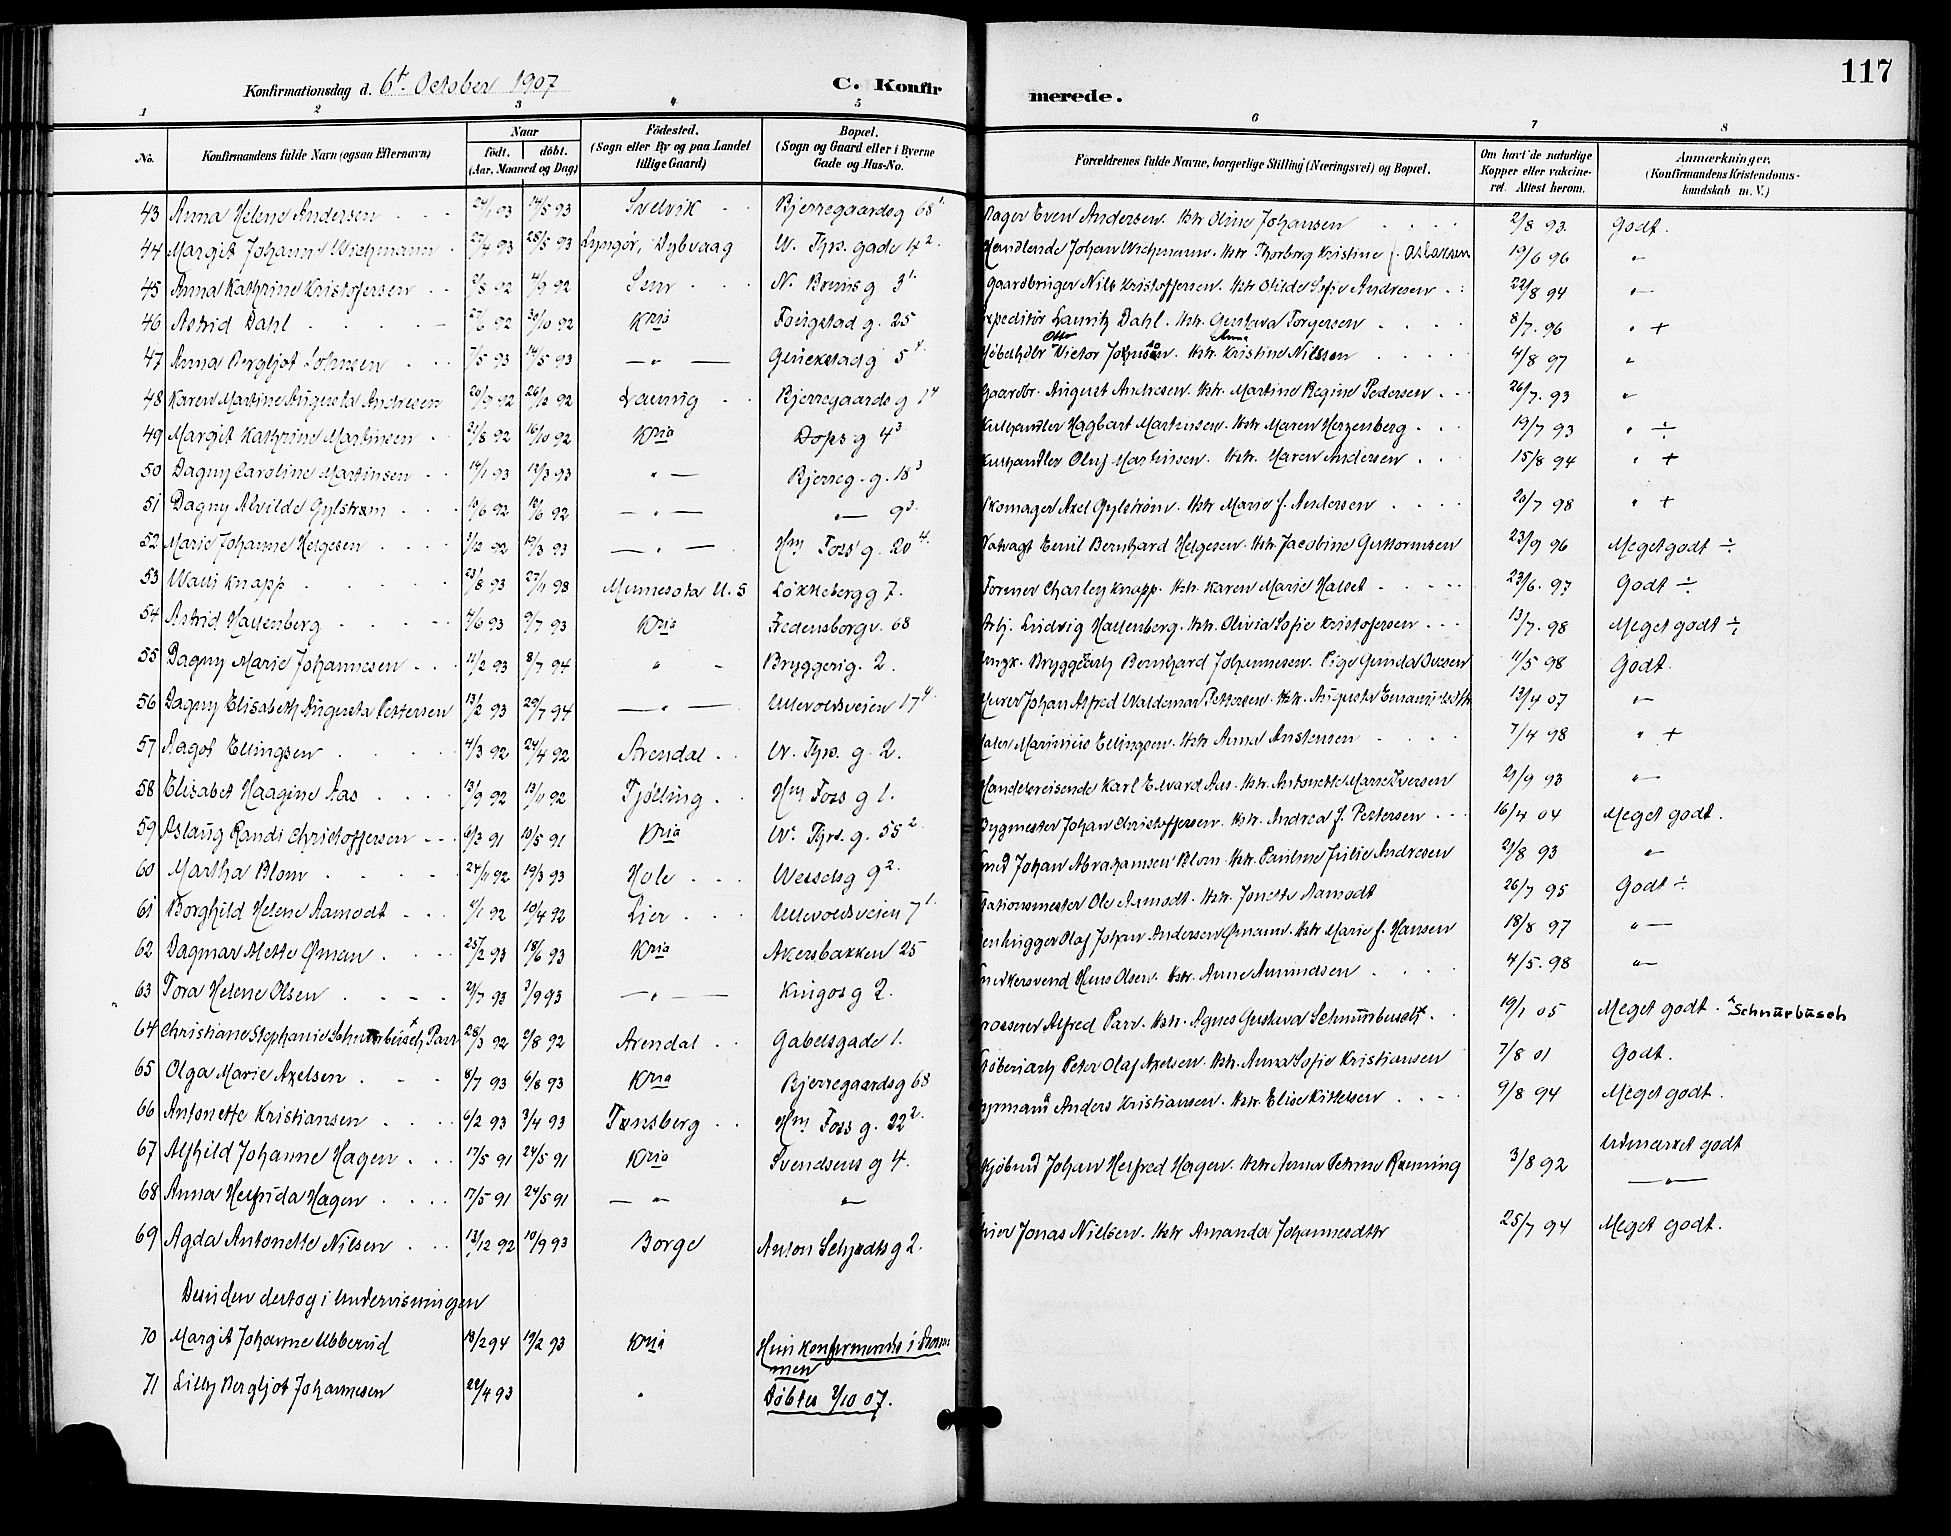 117
Konfirmationsdag d. 6t. October 1907
C. Konfirmerede.
1 2 3 4 5 6 7 8
No. Konfirmandens fulde Navn (ogsaa Efternavn) Naar født. døbt. (Aar, Maaned og Dag) Fødested. (Sogn eller By og paa Landet tillige Gaard) Bopæl. (Sogn og Gaard eller i Byerne Gade og Hus-No. Forældrenes fulde Navne, borgerlige Stilling (Næringsvei) og Bopæl. Om havt de naturlige Kopper eller vakcineret. Attest herom. Anmærkninger, (Konfirmandens Kristendomskundskab m. V.)
43 Anna Helene Andersen 24/1 93 14/5 93 Svelvik Bjerregaardsg 68 Even Andersen. Hstr Oline Johansen 2/8 93. Godt.
44 Margit Johanne Wichmann 27/4 93 28/5 93 Lyngør, Dybvaag W. Thrs. gade 4 2. Handlende Johan Wichmann. Hstr Thorborg Kristine 19/6 96 "
45 Anna Kathrine Kristofersen 92 4/9 92 N. Brunsg 3 1. Gaardbruger Nils Kristoffersen. Hstr Olilde Sofie Andresen 22/8 94 "
46 Astrid Dahl 92 30/10 92 Kria Fougstad g. 25 Expeditør Lauritz Dahl. Hstr. Gustava Torgersen 8/7. 96 " +
47 Anna Bergljot Johnsen 7/5 93 14/5 93 " Glückstadg 5 4. Otto Victor Johnsen. Hstr. Anna Kristine Nilssen 4/8 97 "
48 Karen Martine Augusta Andresen 92 26/12 92 Bjerregaardsg 14 Gaardbr. August Andresen. Hstr. Martine Regine Pedersen 26/7. 93 "
49 Margit Kathrine Martinsen 21/8 92 16/10 92 Kria Dops g 4 3. Kulhandler Hagbart Martinsen. Hstr Maren Herzenberg 19/7 93 " ÷
50 Dagny Caroline Martinsen 14/1 93 12/3 93 " Bjerreg. g. 18 3 Kulhandler Oluf Martinsen. Hstr. Maren Andersen 15/8 94 " +
51 Dagny Alvilde Gylstrøm 92 92 " " 9 3. Skomager Axel Gylstrøm. Hstr Marie f. Andersen 20/7 98 " +
52 Marie Johanne Helgesen 3/12 92 19/3 93 " Hm Foss' g. 20 4. Natvagt Emil Bernhard Helgesen. Hstr. Jacobine Guttormsen 23/9 96 Meget godt ÷
53 Walli Knapp 23/8 93 27/11 98 Minnesota U. S Løkkebergg 7. Farmer Charley Knapp. Hstr. Karen Marie Halset 23/6. 97 Godt ÷
54 Astrid Hallenberg 4/6 93 9/7 93 Kria Fredensborgv. 68 Arbj. Ludvig Hallenberg. Hstr. Olivia Sofie Kristofersen 13/7. 98 Meget godt ÷
55 Dagny Marie Johannesen 11/2 93 8/7 94 " Bryggerig. 2. Ungk. Bryggearb Bernhard Johannesen. Pige Gunda Iversen 11/5 98 Godt.
56 Dagny Elisabeth Augusta Pettersen 13/2 93 29/7 94 " Ullevoldsveien 17 4. Murer Johan Alfred Waldemar Pettersen. Hstr. Augusta 13/4 07 "
57 Aagot Ellingsen 4/3 92 24/4 92 Arendal W. Thrs. g. 2. Maler Marinius Ellingsen. Hstr Anna Anstensen 7/4 98 " +
58 Elisabet Haagine Aas 13/9 92 13/11 92 Tjølling Hm Foss g 1. Handelsreisende Karl Edvard Aas. Hstr. Antonette Marie Iversen 21/9 93 "
59 Aslaug Randi Christoffersen 6/3 91 10/5 91 Kria W. Thrs. g. 55 2. Bygmester Johan Christoffersen. Hstr. Andrea f. Pettersen 16/4 04 Meget godt.
60 Martha Blom 24/11 92 19/3 93 Hole Wesselsg 9 2. Smed Johan Abrahamsen Blom. Hstr. Pauline Julie Andresen 21/8 93 "
61 Borghild Helene Aamodt 4/1 92 10/4 92 Lier Ullevoldsveien 7 1. Stationsmester Ole Aamodt. Hstr. Jonette Aamodt 26/7 95 Godt ÷
62 Dagmar Mette Øman 25/2 93 18/6 93 Kria Akersbakken 25 Stenhugger Olaf Johan Andersen Ømann. Hstr Marie f. Hansen 18/8 97 "
63 Tora Helene Olsen 29/7 93 3/9 93 " Kingos g 2. Snedkersvend Hans Olsen. Hstr. Anne Amundsen 4/5. 98 "
64 Christiane Stephanie Schnurbusch x Parr 28/3 92 2/8 92 Arendal Gabelsgade 1. Grosserer Alfred Parr. Hstr. Agnes Gustava Schnurbusch x 19/1 05 Meget godt. x Schnurbusch
65 Olga Marie Axelsen 8/7 93 6/8 93 Kria Bjerregaardsg 68 Støberiarb Peter Olaf Axelsen. Hstr. Anna Sofie Kristiansen 7/8 01 Godt.
66 Antonette Kristiansen 6/2 93 3/4 93 Tønsberg Hm Foss g. 22 2. Styrmand Anders Kristiansen. Hstr. Elise Kittelsen 9/8 94 Meget godt.
67 Alfhild Johanne Hagen 17/5 91 24/5 91 Kria Svendsens g 4. Johan Helfred Hagen. Hstr Anna Petrine Rønning 3/8 92 Udmærket godt
68 Anna Helfrida Hagen 17/5 91 24/5 91 " " "
69 Agda Antonette Nilsen 13/12 92 10/9 93 Borge Anton Schjødtsg 2. Jonas Nielsen. Hstr Amanda Johannesdtr 25/7 94 Meget godt.
Desuden deltog i Undervisningen
70 Margit Johanne Ubberud 18/2 94 19/2 93 Kria Hun konfirmeredes i Drammen
71 Lilly Bergljot Johannesen 22/4 93 " Døbtes 2/10 07.